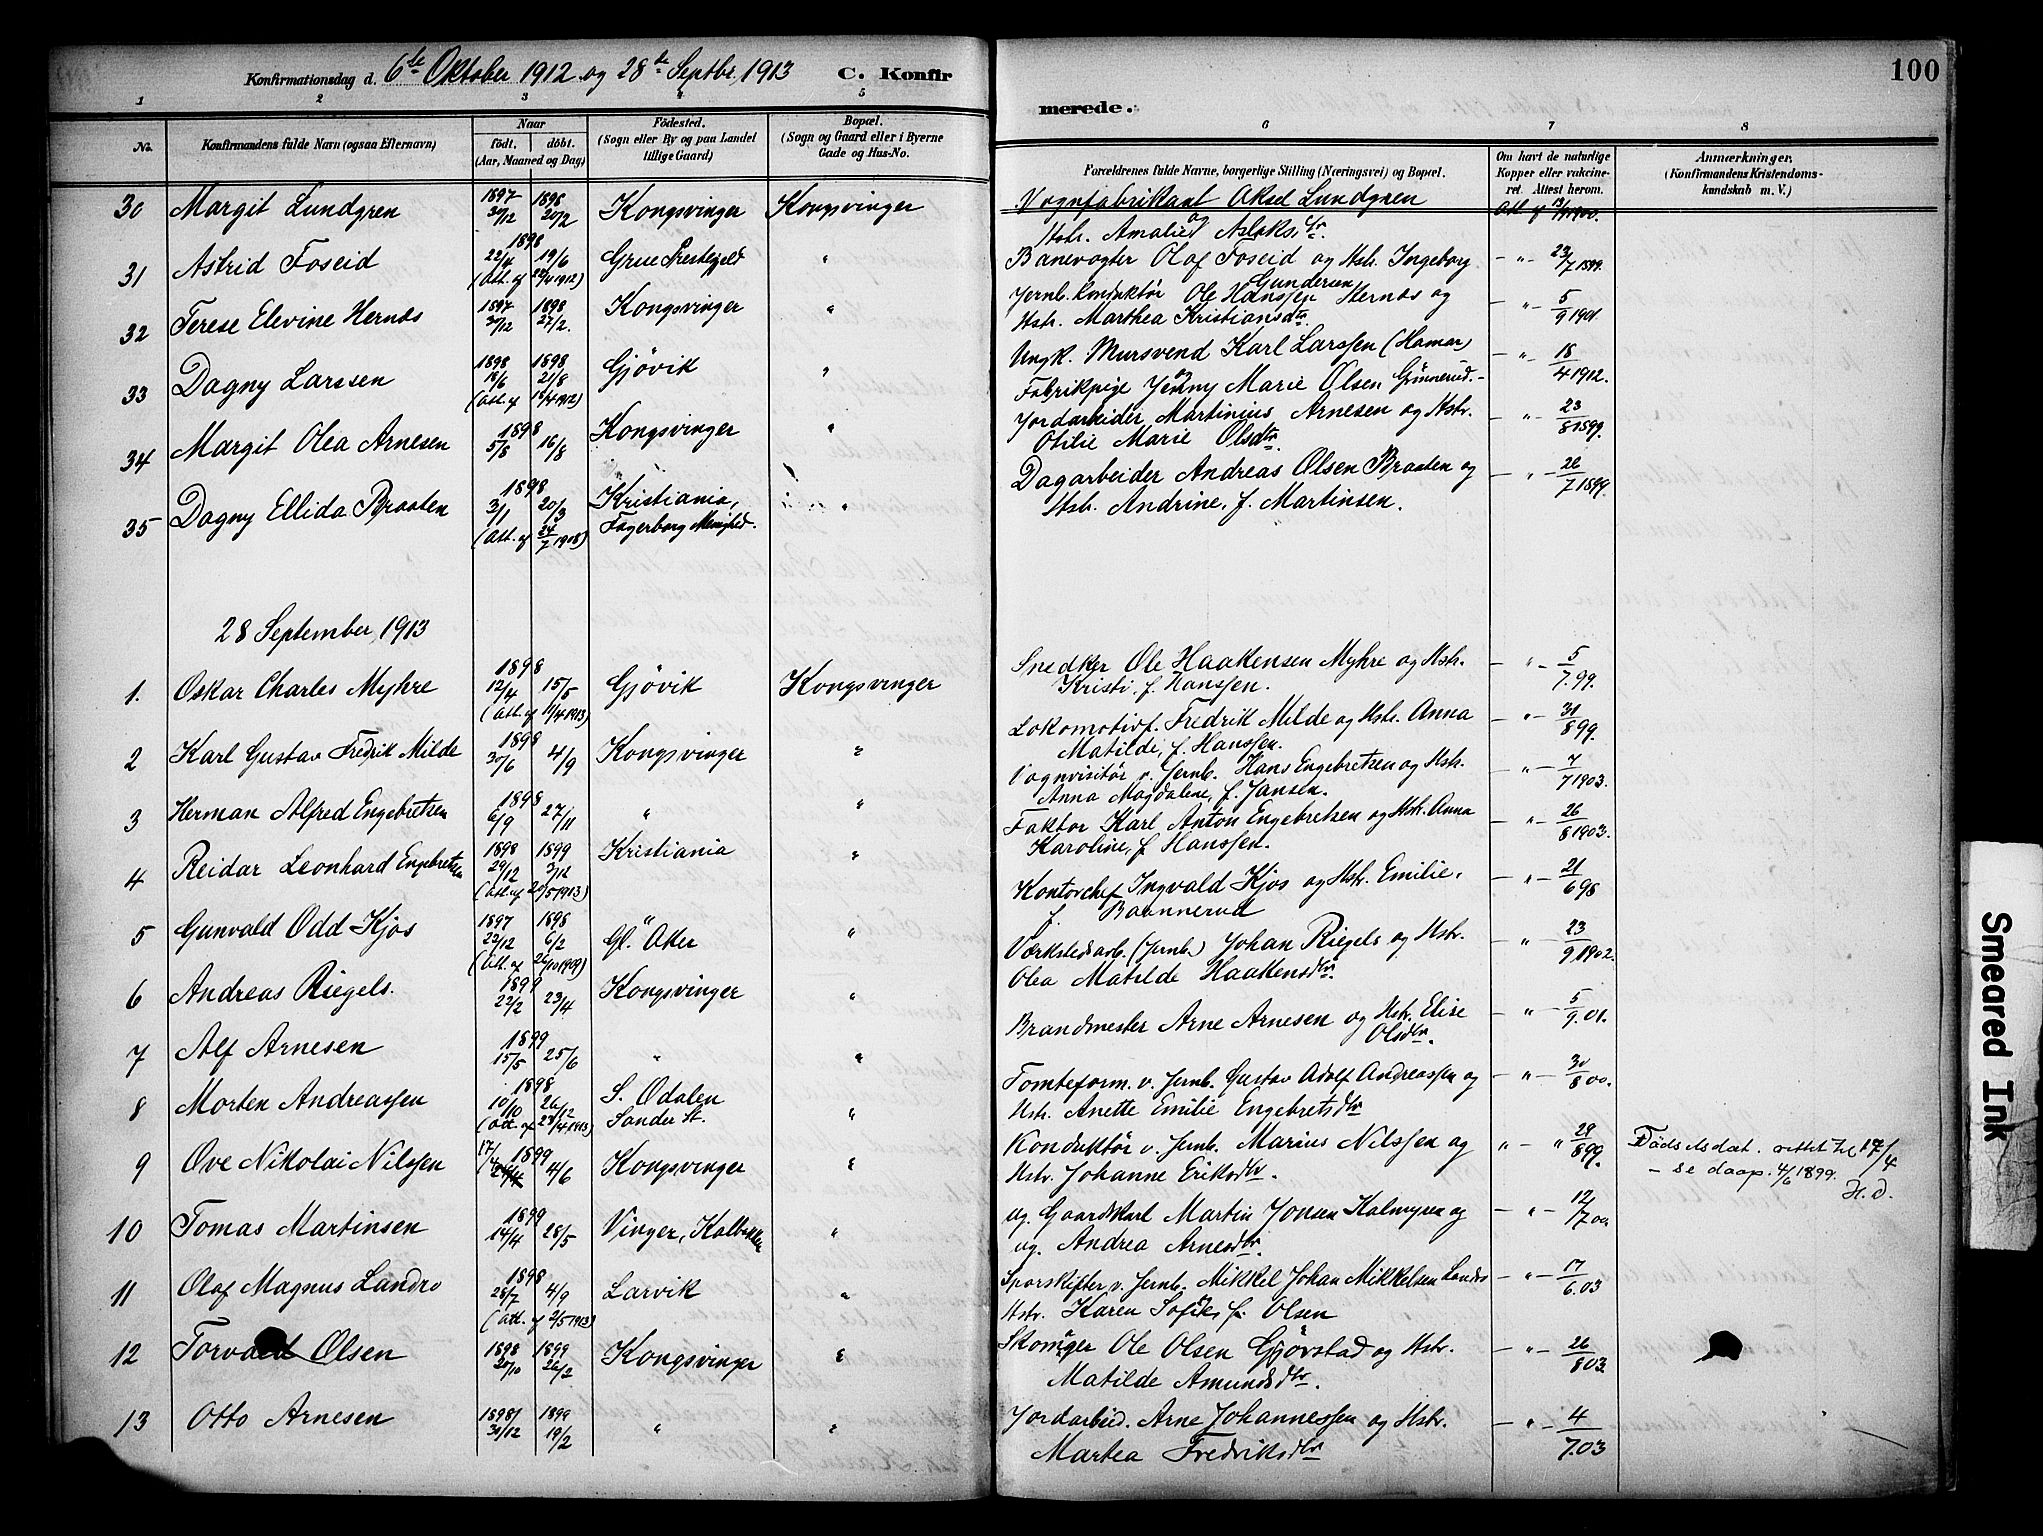 Konfirmationsdag d. 6te Oktober 1912 og 28de Septbr. 1913 C. Konfir
merede. 100
1 2 3 4 5 6 7 8
No. Konfirmandens fulde Navn (ogsaa Efternavn) Naar født. døbt. (Aar, Maaned og Dag) Fødested. (Sogn eller By og paa Landet tillige Gaard) Bopæl. (Sogn og Gaard eller i Byerne Gade og Hus-No.
Forældrenes fulde Navne, borgerlige Stilling (Næringsvei) og Bopæl. Om havt de naturlige Kopper eller vakcineret. Attest herom. Anmærkninger. (Konfirmandens Kristendomskundskab m. V.)
30 Margit Lundgren 1897 30/12 1898 20/2 Kongsvinger Kongsvinger Vognfabrikant Aksel Lundgren og
Hstr. Amalie Aslaksdtr. Att. af 13/11 1900.
31 Astrid Foseid 1898 22/4 19/6 Grue Prestegjeld " Banevogter Olaf Foseid og Hstr. Ingeborg Gundersen — " — 23/7 1899.
(Att. af 22/4 1912)
32 Terese Elevine Hernes 1897 30/12 1898 27/2. Kongsvinger " Jernb. konduktør Ole Hanssen Hernes og
Hstr. Marthea Kristiansdtr. — " — 5/9 1901.
33 Dagny Larssen 1898 16/6 1898 21/8 Gjøvik " Ungk. Mursvend Karl Larssen (Hamar)
(Att. af 18/4 1912) Fabrikpige Jenny Marie Olsen Grinnerud. — " — 18/4 1912.
34 Margit Olea Arnesen 1898 5/5 16/8 Kongsvinger " Jordarbeider Martinius Arnesen og Hstr.
Otilie Marie Olsdtr — " — 23/8 1899.
35 Dagny Ellida Braaten 1898 3/1 20/3 Kristiania, " Dagarbeider Andreas Olsen Braaten og
(Att. af 24/7 1908) Fagerborg Menighed. Hstr. Andrine, f. Martinsen. — " — 26/7 1899.
28 September, 1913
1. Oskar Charles Myhre 1898 12/4 15/5 Gjøvik Kongsvinger Snedker Ole Haakensen Myhre og Hstr.
(Att. af 11/4 1913) Kristi, f. Hanssen. — " — 5/7.99.
2 Karl Gustav Fredrik Milde 1898 30/6 4/9 Kongsvinger " Lokomotivf. Fredrik Milde og Hstr. Anna
Matilde, f. Hanssen. — " — 31/8 99.
3 Herman Alfred Engebretsen 1898 6/9 27/11 " " Vognvisitør v. Jernb. Hans Engebretsen og Hstr.
Anna Magdalene, f. Jansen. — " — 7/7 1903.
4 Reidar Leonhard Engebretsen 1898 29/12 1899 3/12 Kristiania " Faktor Karl Anton Engebretsen og Hstr. Anna
(Att. af 20/5 1913) Karoline, f. Hanssen. — " — 26/8 1903.
5 Gunvald Odd Kjos 1897 22/12 1898 6/2 Gl. Aker " Kontorchef Ingvald Kjos og Hstr. Emilie,
(Att. af 26/10 1909) f. Baannerud — " — 21/6 98
6 Andreas Riegels. 1899 22/2 23/4 Kongsvinger " Værkstedsarb. (Jernb.) Johan Riegels og Hstr.
Olea Matilde Haakensdtr. — " — 23/9.1902.
7 Alf Arnesen 1899 15/5 25/6 " " Brandmester Arne Arnesen og Hstr. Elise
Olsdtr. — " — 5/9.01.
8 Morten Andreassen 1898 10/10 26/12 S. Odalen " Tomteform. v. Jernb. Gustav Adolf Andreassen og
(Att. af 23/4 1913) Sander St. Hstr. Anette Emilie Engebretsdtr — " — 30/8 00.
9 Ove Nikolai Nilssen 17/4 1899 4/6 Kongsvinger " Konduktør v. Jernb. Marius Nilssen og
Hstr. Johanne Eriksdtr. " — " 29/8 99. Fødselsdat. rettet til 17/4
— se daap. 4/6 1899.
H.d.
10 Tomas Martinsen 1899 14/4 28/5 Vinger, Kolbekken " ug. Gaardskarl Martin Johan Kalmyren og
ug. Andrea Arnesdtr. — " — 12/7 00.
11 Olaf Magnus Landrø 1898 28/7 4/9 Larvik " Sporskifter v. Jernb. Mikkel Johan Mikkelsen Landrø
(Att. af 2/5 1913) Hstr. Karen Sofie, f. Olsen — " — 17/6.03
12 Torvald Olsen 1898 20/10 1899 26/2 Kongsvinger " Skomager Ole Olsen Gjørstad og Hstr.
Matilde Amundsdtr. — " — 26/8 03.
13 Otto Arnesen 1898 30/12 1899 19/2 " " Jordarbeid. Arne Johannessen og Hstr.
Martea Fredriksdtr — " — 4/7.03
Smeared Ink